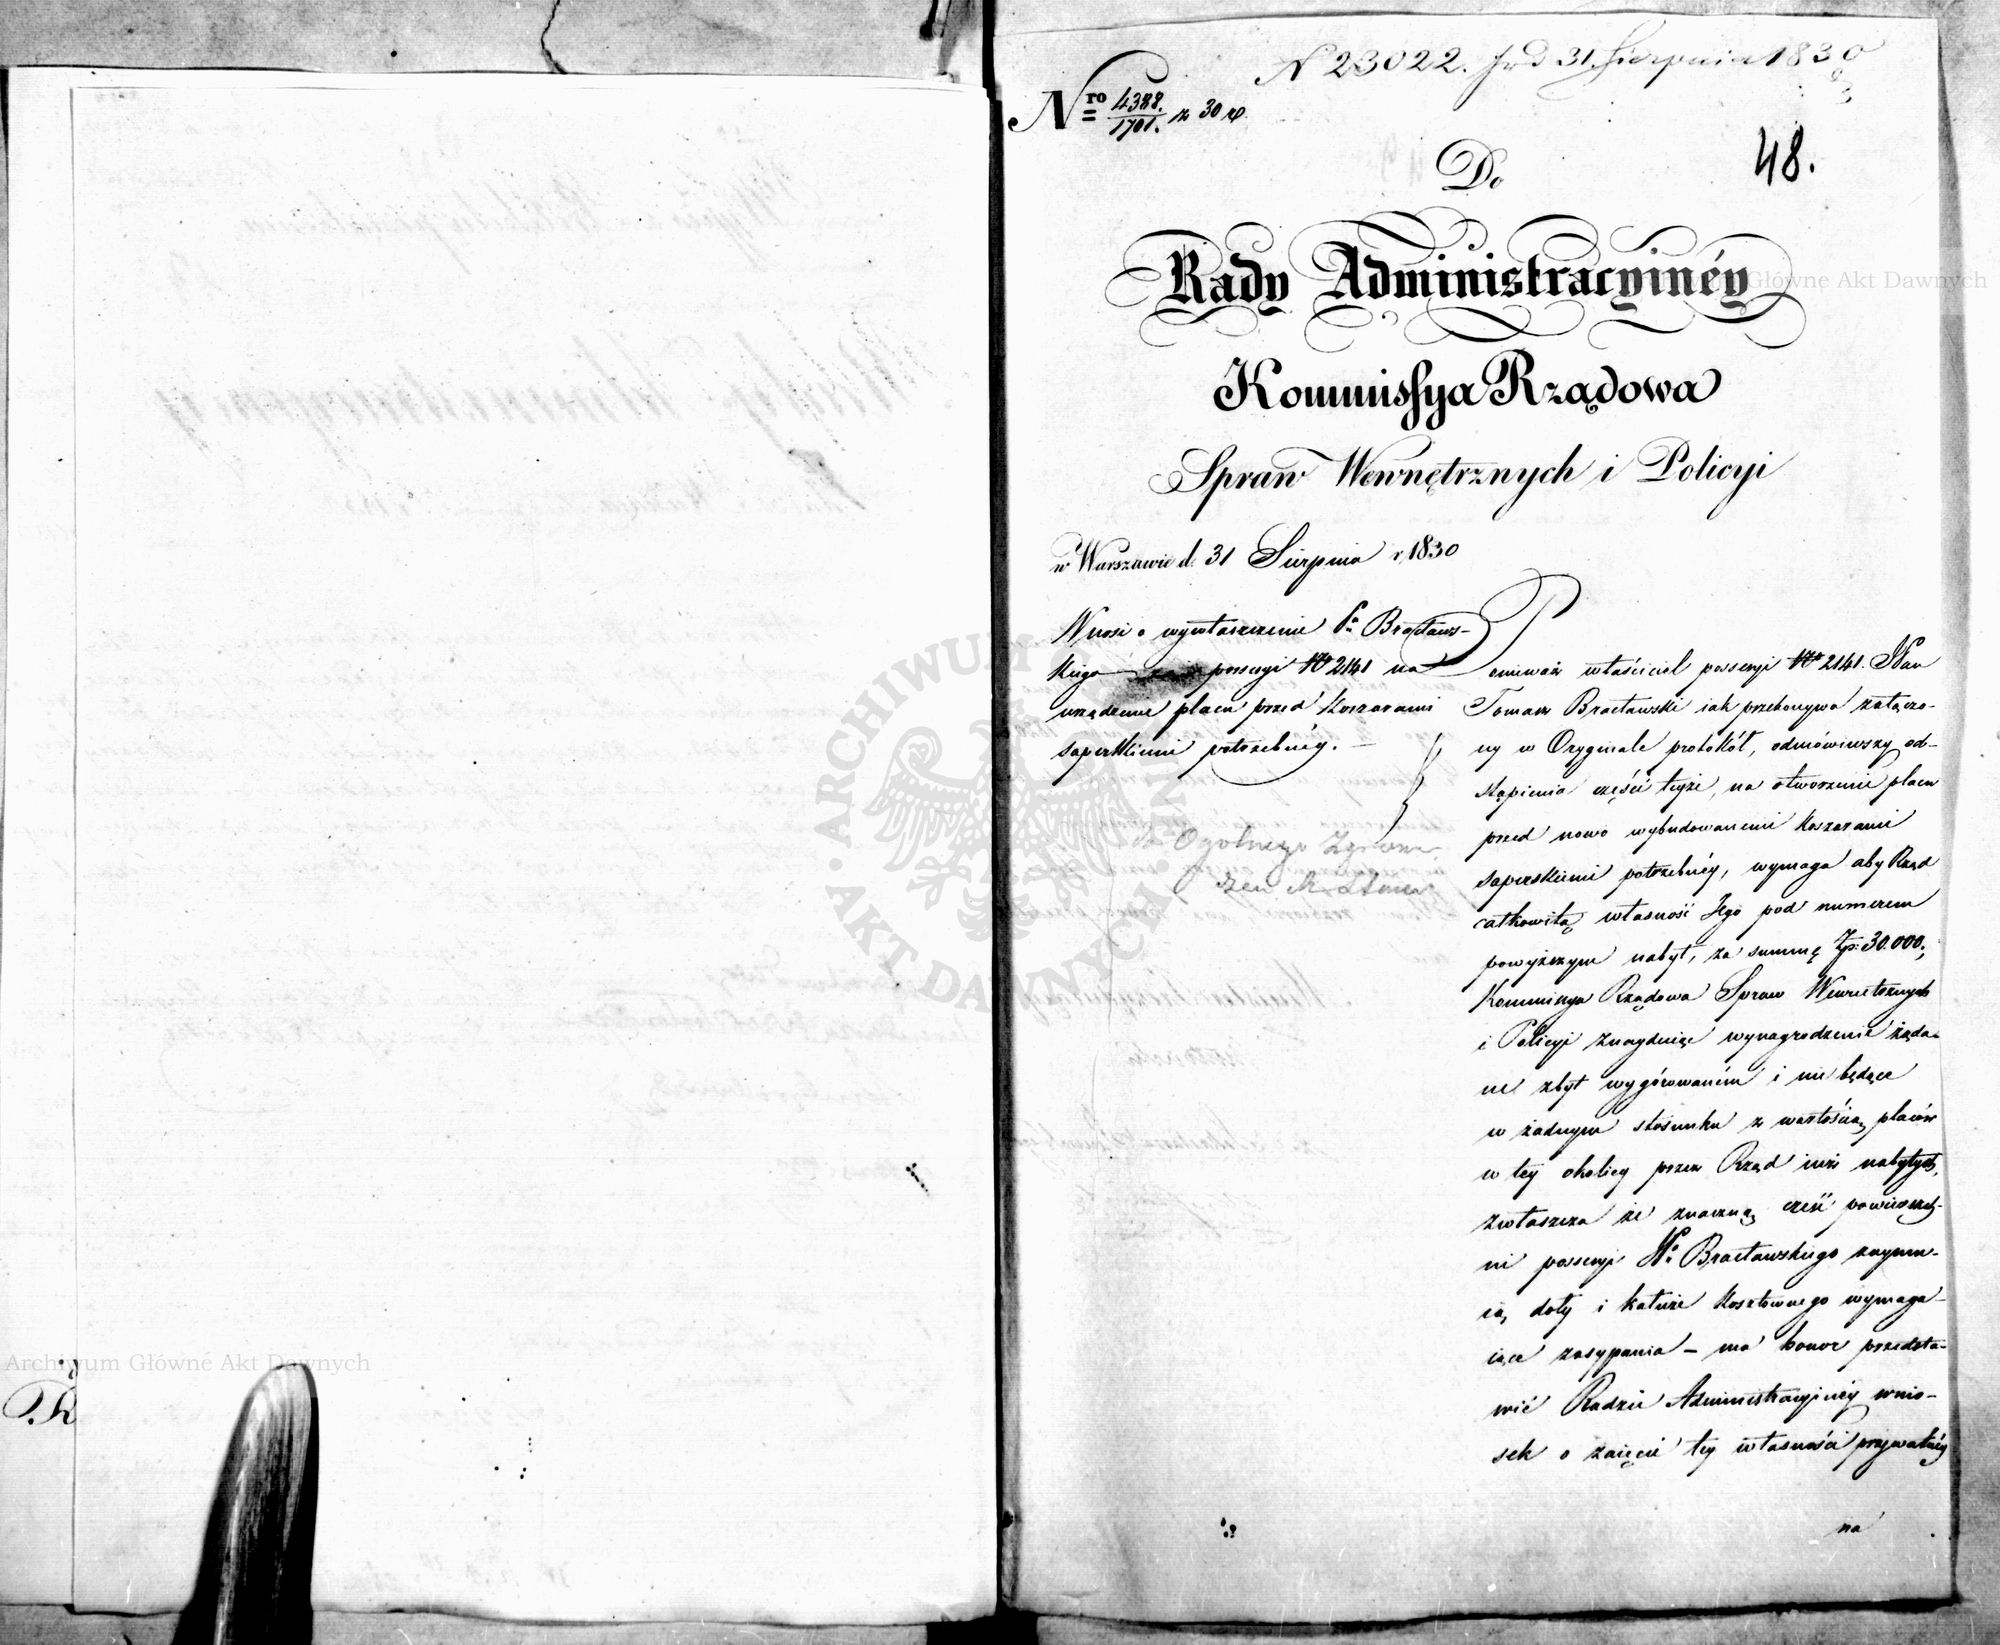 N 23022. prd 31 Sierpnia 1830
Nro 4388./1701. z 30 r.
48.
Do
Rady Administracyinéy
Kommissya Rządowa
Spraw Wewnętrznych i Policyi
w Warszawie d. 31 Sierpnia r 1830
Wnosi o wywłaszczenie Pa Bracławs-
kiego possesyi No 2141 na
urządzenie placu przed Koszarami
saperskiemi potrzebnéy. —
Ogólnego
Ponieważ właściciel possesyi No 2141. Pan
Tomasz Bracławski iak przekonywa załączo-
ny w Oryginale protokół, odmówiwszy od-
stąpienia części teyże, na otworzenie placu
przed nowo wybudowanemi Koszarami
saperskiemi potrzebnéy, wymaga aby Rząd
całkowitą własność Jego pod numerem
powyższym nabył, za summę Złp. 30.000,
Kommissya Rządowa Spraw Wewnętrznych
i Policyi znayduiąc wynagrodzenie żąda-
ne zbyt wygórowaném i nie będące
w żadnym stosunku z wartością placów
w tey okolicy przez Rząd iuż nabytych,
zwłaszcza że znaczną część powierzch-
ni possesyi Pa Bracławskiego zaymu-
ią doły i kałuże kosztownego wymaga-
iące zasypania — ma honor przedsta-
wić Radzie Administracyinéy wnio-
sek o zaięcie tey własności prywatnéy
na
Archiwum Główne Akt Dawnych
Archiwum Główne Akt Dawnych
ARCHIWUM GŁÓWNE AKT DAWNYCH